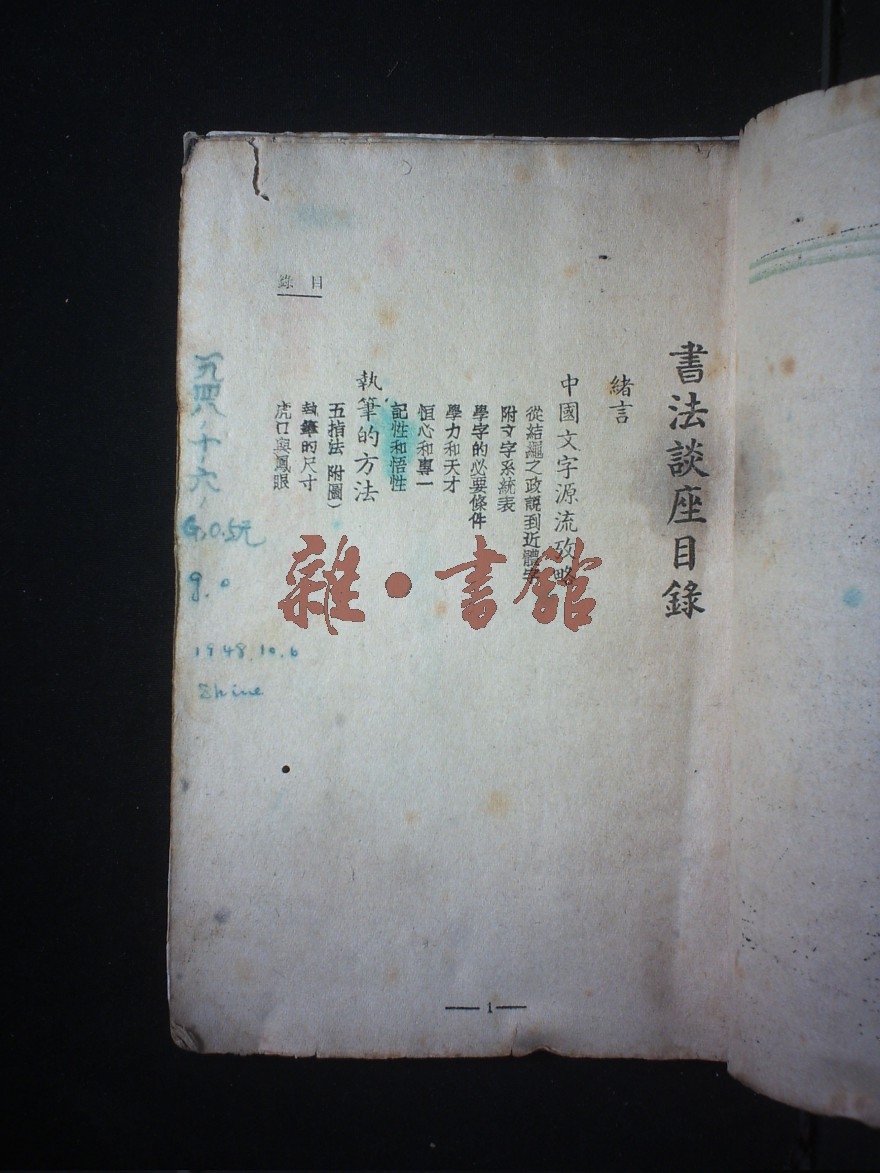 書法談座目錄
緒言
中國文字源流攷略
從結繩之政說到近體字
附文字系統表
學字的必要條件
學力和天才
恒心和專一
記性和悟性
執筆的方法
五指法 附圖)
執筆的尺寸
虎口與鳳眼
目錄
一九四八、十、六、
G.0.5元
g.o
1948.10.6
Shine
雜·書館
1